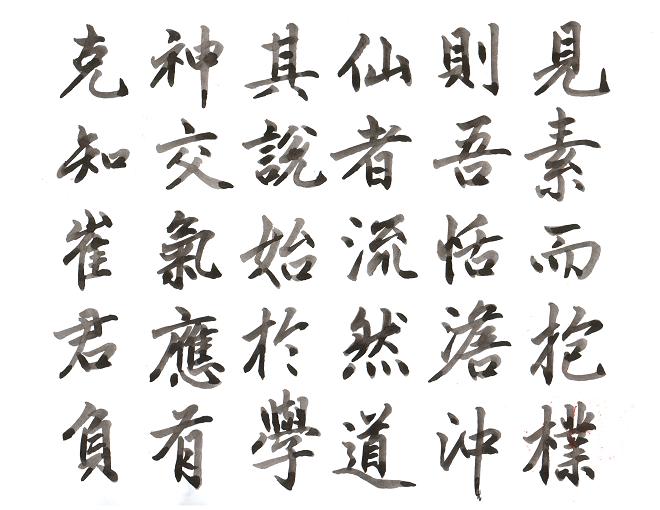 見素而抱樸
則吾恬澹沖
仙者流然道
其說始於學
神交氣應有
克知崔君負